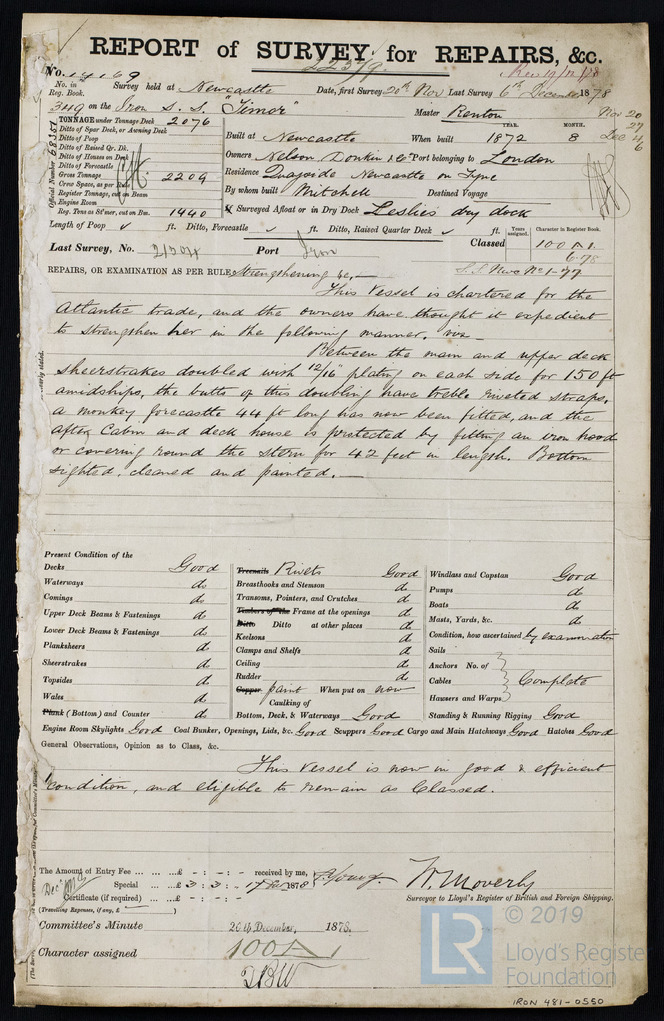 REPORT of SURVEY for REPAIRS, &c.
No. 14169
No. in Reg. Book. Survey held at Newcastle Date, first Survey 20th Nov Last Survey 6th December 1878
349 on the Iron S. S. "Timor" Master Renton
Nov 20
27
Dec 4
6
TONNAGE under Tonnage Deck 2076
Ditto of Spar Deck, or Awning Deck
Ditto of Poop
Ditto of Raised Qr. Dk.
Ditto of Houses on Deck
Ditto of Forecastle
Gross Tonnage 2209
Crew Space, as per Rule
Register Tonnage, cut on Beam
Engine Room
Reg. Tons as Str., cut on Bm. 1440
Official Number 68351
YEAR. MONTH.
Built at Newcastle When built 1872 8
Owners Nelson, Donkin & Co Port belonging to London
Residence Quayside Newcastle on Tyne
By whom built Mitchell Destined Voyage
If Surveyed Afloat or in Dry Dock Leslies dry dock
Length of Poop ft. Ditto, Forecastle ft. Ditto, Raised Quarter Deck ft.
Years assigned. Character in Register Book.
Last Survey, No. 21204 Port Iron Classed 100A1
6.78
S.S. Nwc No 1-77
REPAIRS, OR EXAMINATION AS PER RULE Strengthening &c,—
This Vessel is chartered for the
Atlantic trade, and the owners have thought it expedient
to strengthen her in the following manner. viz—
Between the main and upper deck
sheerstrakes doubled with 12/16" plating on each side for 150 ft
amidships, the butts of this doubling have treble riveted straps,
a monkey forecastle 44 ft long has now been fitted, and the
after Cabin and deck house is protected by fitting an iron hood
or covering round the stern for 42 feet in length. Bottom
sighted, cleaned and painted.—
Present Condition of the
Decks Good
Waterways do
Comings do
Upper Deck Beams & Fastenings do
Lower Deck Beams & Fastenings do
Planksheers do
Sheerstrakes do
Topsides do
Wales do
Plank (Bottom) and Counter do
Treenails Rivets Good
Breasthooks and Stemson do
Transoms, Pointers, and Crutches do
Timbers of the Frame at the openings do
Ditto Ditto at other places do
Keelsons do
Clamps and Shelfs do
Ceiling do
Rudder do
Copper paint When put on now
Caulking of
Bottom, Deck, & Waterways Good
Windlass and Capstan Good
Pumps do
Boats do
Masts, Yards, &c. do
Condition, how ascertained by examination
Sails
Anchors No. of
Cables Complete
Hawsers and Warps
Standing & Running Rigging Good
Engine Room Skylights Good Coal Bunker, Openings, Lids, &c. Good Scuppers Good Cargo and Main Hatchways Good Hatches Good
General Observations, Opinion as to Class, &c.
This Vessel is now in good & efficient
condition, and eligible to remain as Classed.
The Amount of Entry Fee ... ... £ - : - : - received by me,
Special ... ... £ 3 : 3 : - 17 Dec 1878
Certificate (if required) ... £ - : - : -
(Travelling Expenses, if any, £ )
W. Moverly
Surveyor to Lloyd's Register of British and Foreign Shipping.
Committee's Minute 20th December, 1878.
Character assigned 100A1
© 2019
LR
Lloyd's Register
Foundation
IRON 481-0550